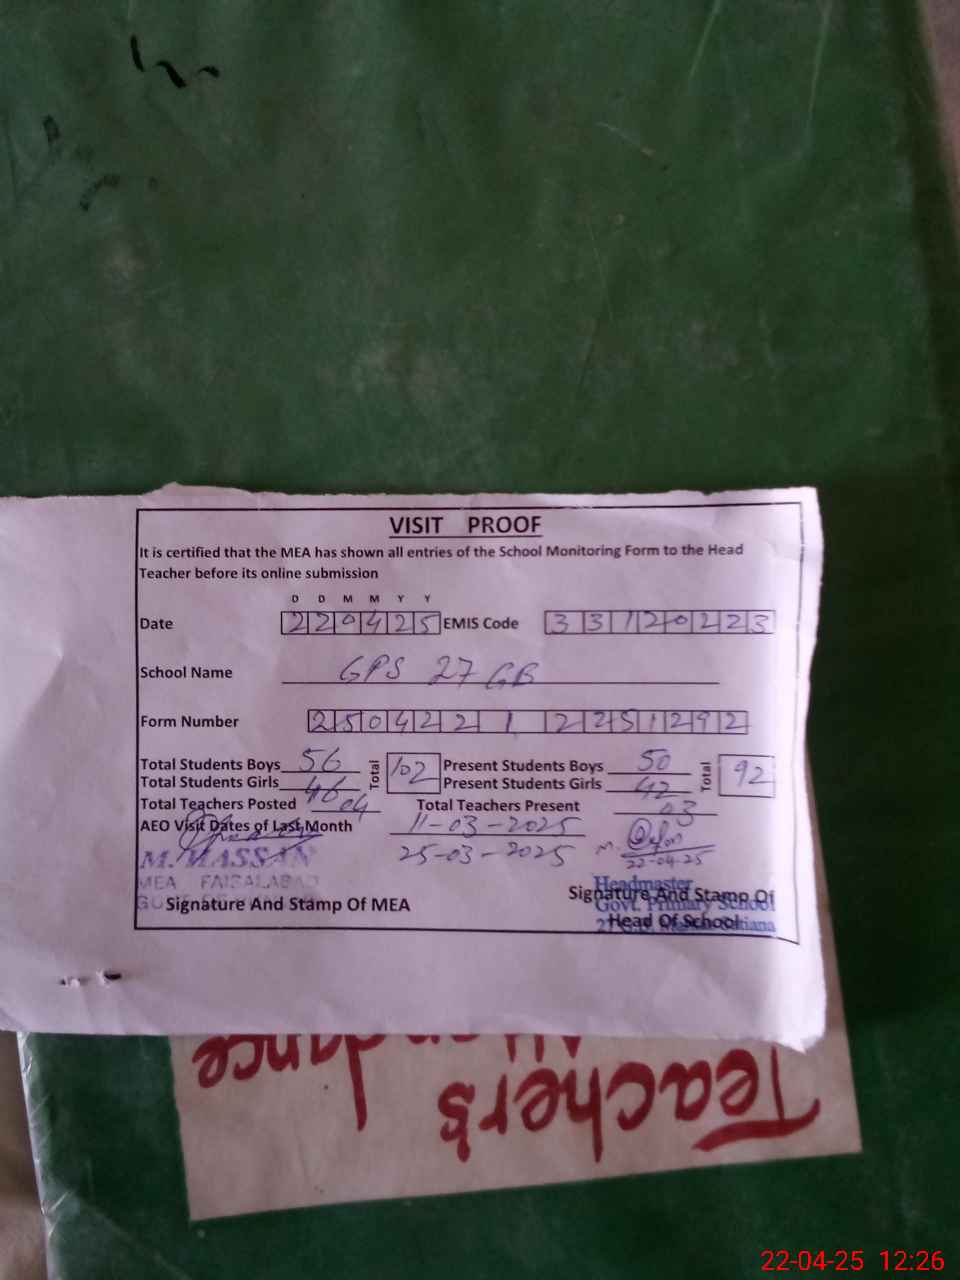 VISIT PROOF
It is certified that the MEA has shown all entries of the School Monitoring Form to the Head
Teacher before its online submission
D D M M Y Y
Date 220425 EMIS Code 33120223
School Name GPS 27 GB
Form Number 2504221 2251292
Total Students Boys 56 Total 102 Present Students Boys 50 Total 92
Total Students Girls 46 Present Students Girls 42
Total Teachers Posted 04 Total Teachers Present 03
AEO Visit Dates of Last Month 11-03-2025
25-03-2025
22-04-25
M. MASSAN
MEA FAISALABAD
Signature And Stamp Of MEA
Headmaster
Signature And Stamp Of
Govt. Primary School
Head Of School
Teachers
Attendance
22-04-25 12:26